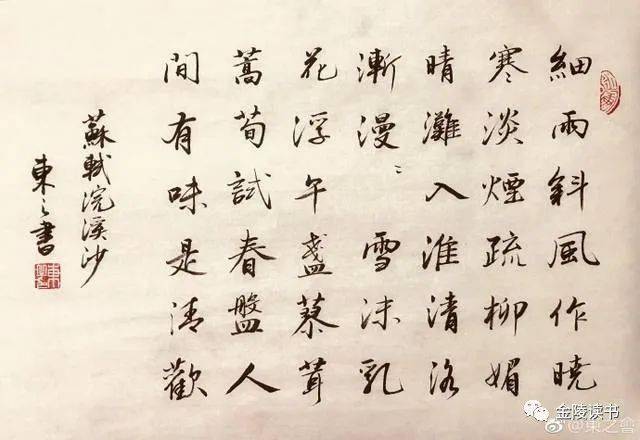 細雨斜風作曉
寒淡煙疏柳媚
晴灘入淮清洛
漸漫〻雪沫乳
花浮午盞蓼茸
蒿筍試春盤人
間有味是清歡
蘇軾浣溪沙
東之書
金陵读书